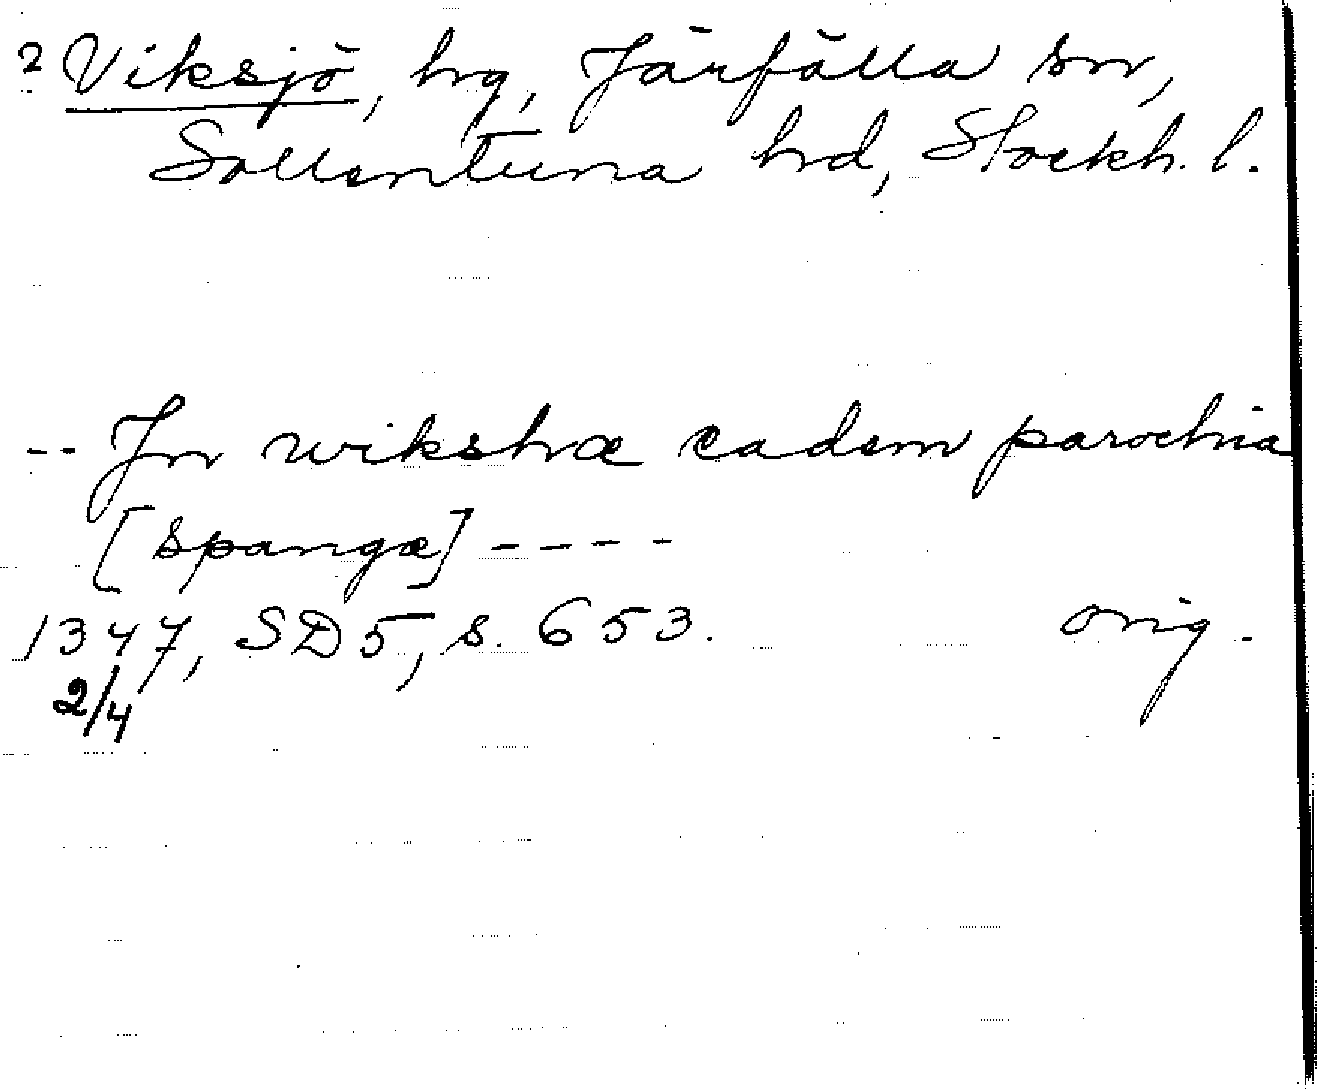 ? Viksjö, hg, Järfälla sn,
Sollentuna hd, Stockh. l.
-- Jn wikshæ eadem parochia
[spangæ] ----
1347, SD5, s. 653. orig.
2/4